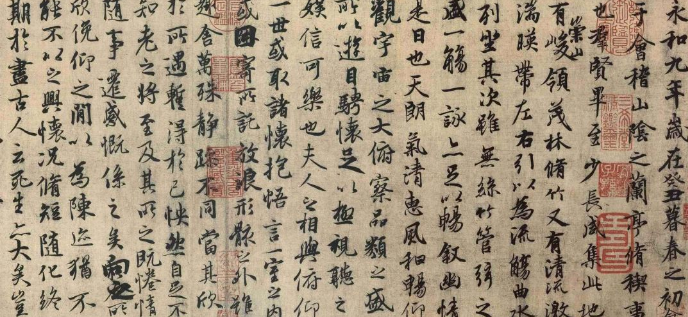 永和九年歲在癸丑暮春之初
于會稽山陰之蘭亭脩稧事
也羣賢畢至少長咸集此地
有崇山峻領茂林脩竹又有清流激
湍暎帶左右引以為流觴曲水
列坐其次雖無絲竹管弦之
盛一觴一詠亦足以暢叙幽情
是日也天朗氣清惠風和暢仰
觀宇宙之大俯察品類之盛
所以遊目騁懷足以極視聽之
娛信可樂也夫人之相與俯仰
一世或取諸懷抱悟言一室之內
或因寄所託放浪形骸之外雖
趣舍萬殊靜躁不同當其欣
於所遇暫得於己怏然自足不
知老之將至及其所之既惓情
隨事遷感慨係之矣向之所
欣俛仰之閒以為陳迹猶不
能不以之興懷況脩短隨化終
期於盡古人云死生亦大矣豈